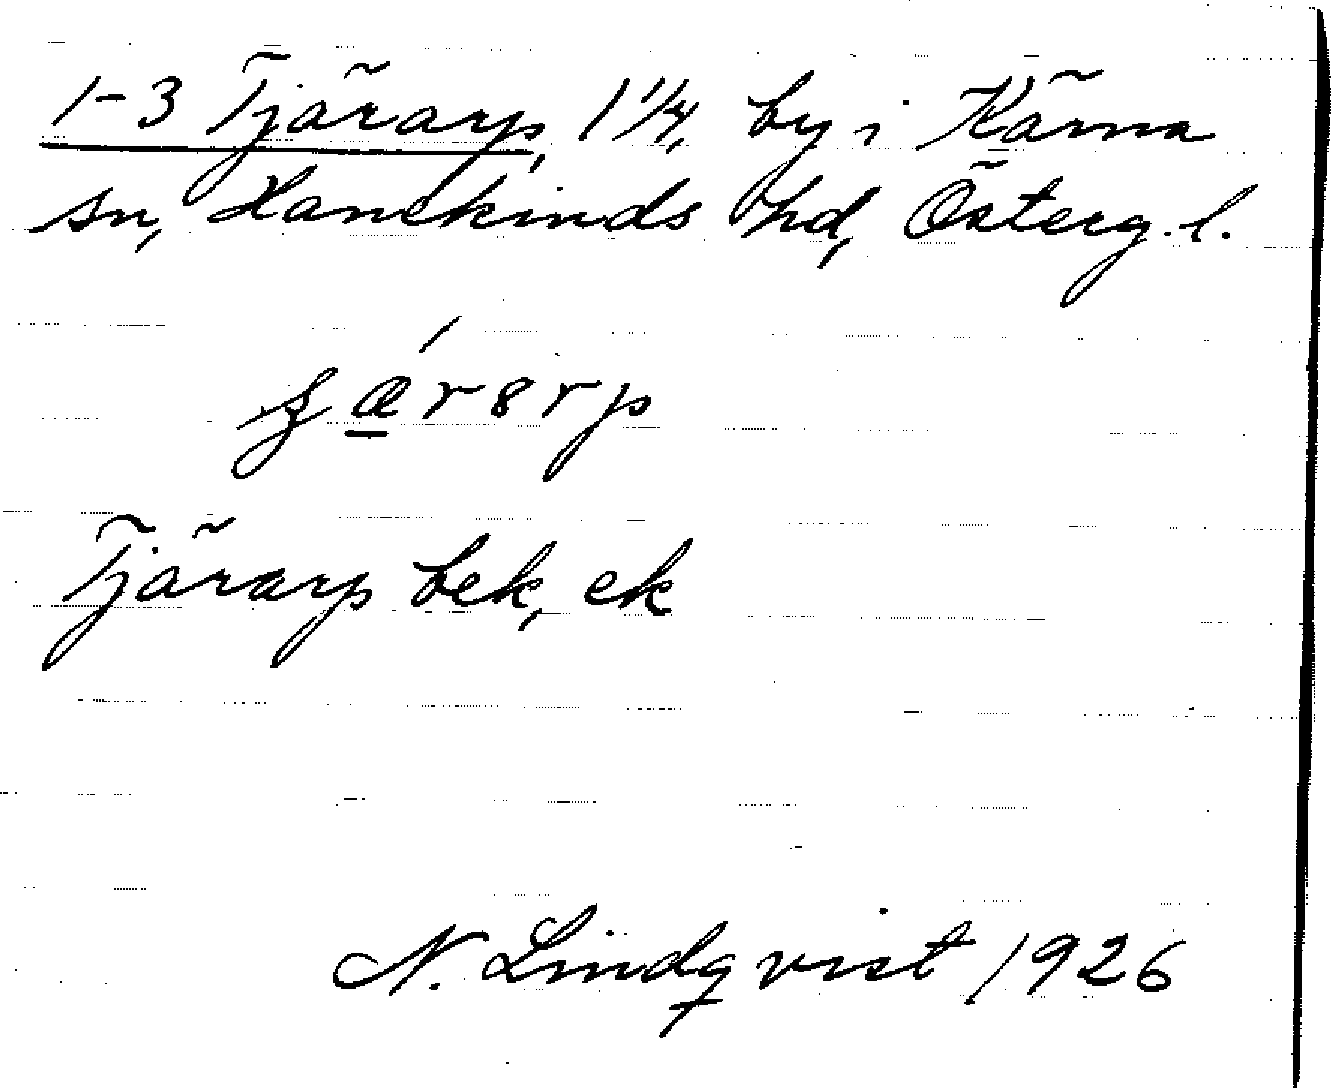 1-3 Tjärarp, 1 1/4, by i Kärna
sn, Hanekinds hd, Österg. l.
Tjärarp bek, ek
N. Lindqvist 1926